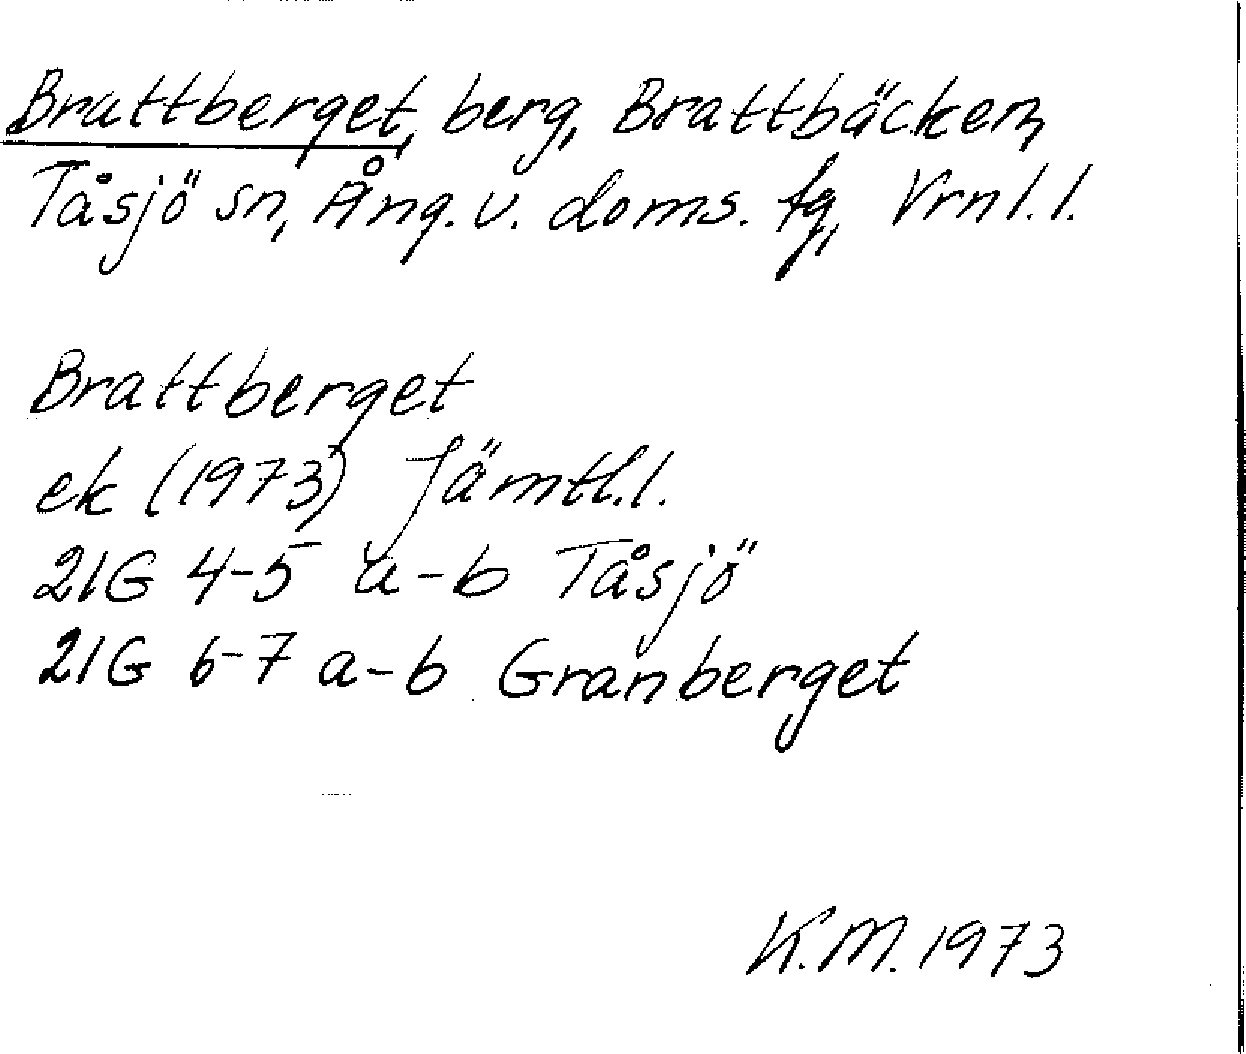 Brattberget, berg, Brattbäcken,
Tåsjö sn, Ång. v. doms. tg, Vrnl. l.
Brattberget
ek (1973) Jämtl. l.
21G 4-5 a-b Tåsjö
21G 6-7 a-b Granberget
K.M. 1973